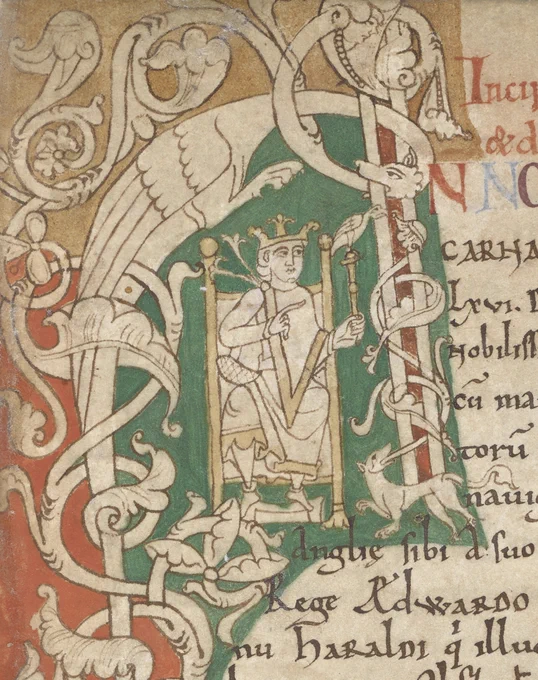 Incip
& d
N NO
CARNA
Lxvi.
nobiliss
cū ma
torū
nauig
Anglię sibi a suo
Rege Ædwardo
nu haraldi q̍ illuc